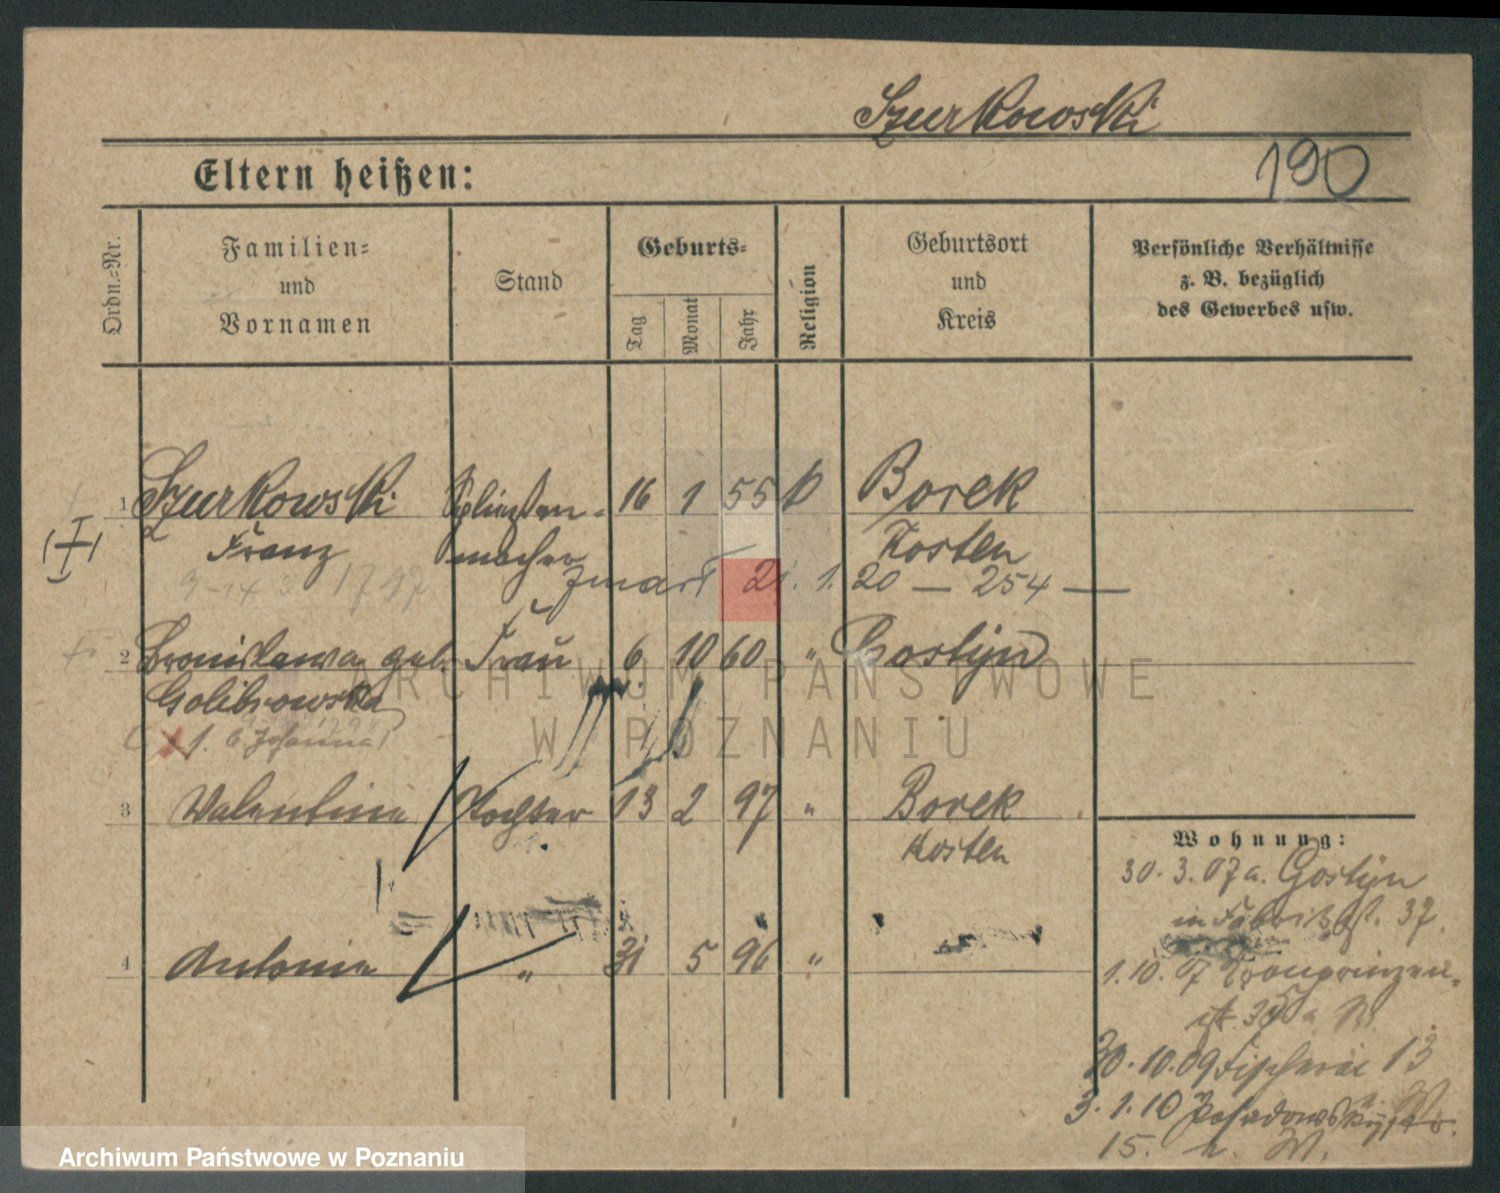 Szurkowski
190
Eltern heißen:
Ordn.=Nr.
Familien=
und
Vornamen
Stand
Geburts=
Tag
Monat
Jahr
Religion
Geburtsort
und
Kreis
Persönliche Verhältnisse
z. B. bezüglich
des Gewerbes usw.
1 Szurkowski 16 1 55 Borek
Franz macher Kosten
zmarł 21. 1. 20 — 254 —
2 Bronisława geb. Frau 6 10 60 " Gostyn
Golibrowska
ARCHIWUM PAŃSTWOWE
W POZNANIU
3 Valentine Tochter 13 2 97 " Borek
Kosten
Wohnung:
30. 3. 07 a. Gostyn
in Fabrikst. 37
4 Antonie " 31 5 96 "
1. 10. 07 Kronprinzen-
30. 10. 09 Fischerei 13
3. 1. 10 Posadowskystr.
15. h. W.
Archiwum Państwowe w Poznaniu